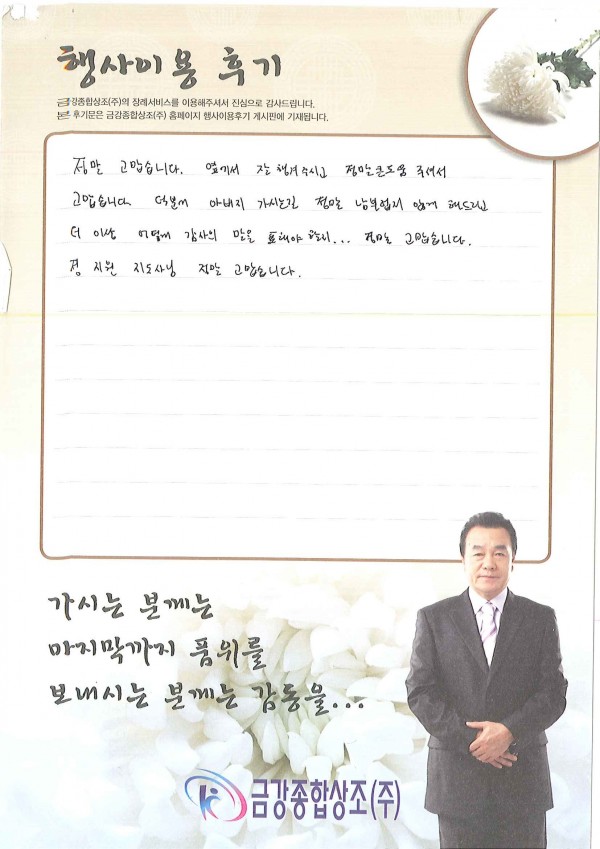 행사이용 후기
금강종합상조(주)의 장례서비스를 이용해주셔서 진심으로 감사드립니다.
본 후기문은 금강종합상조(주) 홈페이지 행사이용후기 게시판에 기재됩니다.
정말 고맙습니다. 옆에서 잘 챙겨주시고 정말 큰도움 주셔서
고맙습니다. 덕분에 아버지 가시는길 정말 남부럽지 않게 해드리고
더 이상 어떻게 감사의 말을 표해야 할지... 정말 고맙습니다.
정 지원 지도사님 정말 고맙습니다.
가시는 분께는
마지막까지 품위를
보내시는 분께는 감동을...
금강종합상조(주)